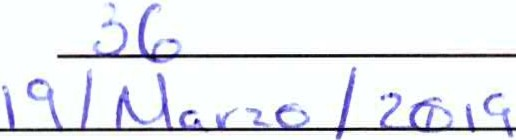 36
19/Marzo/2019